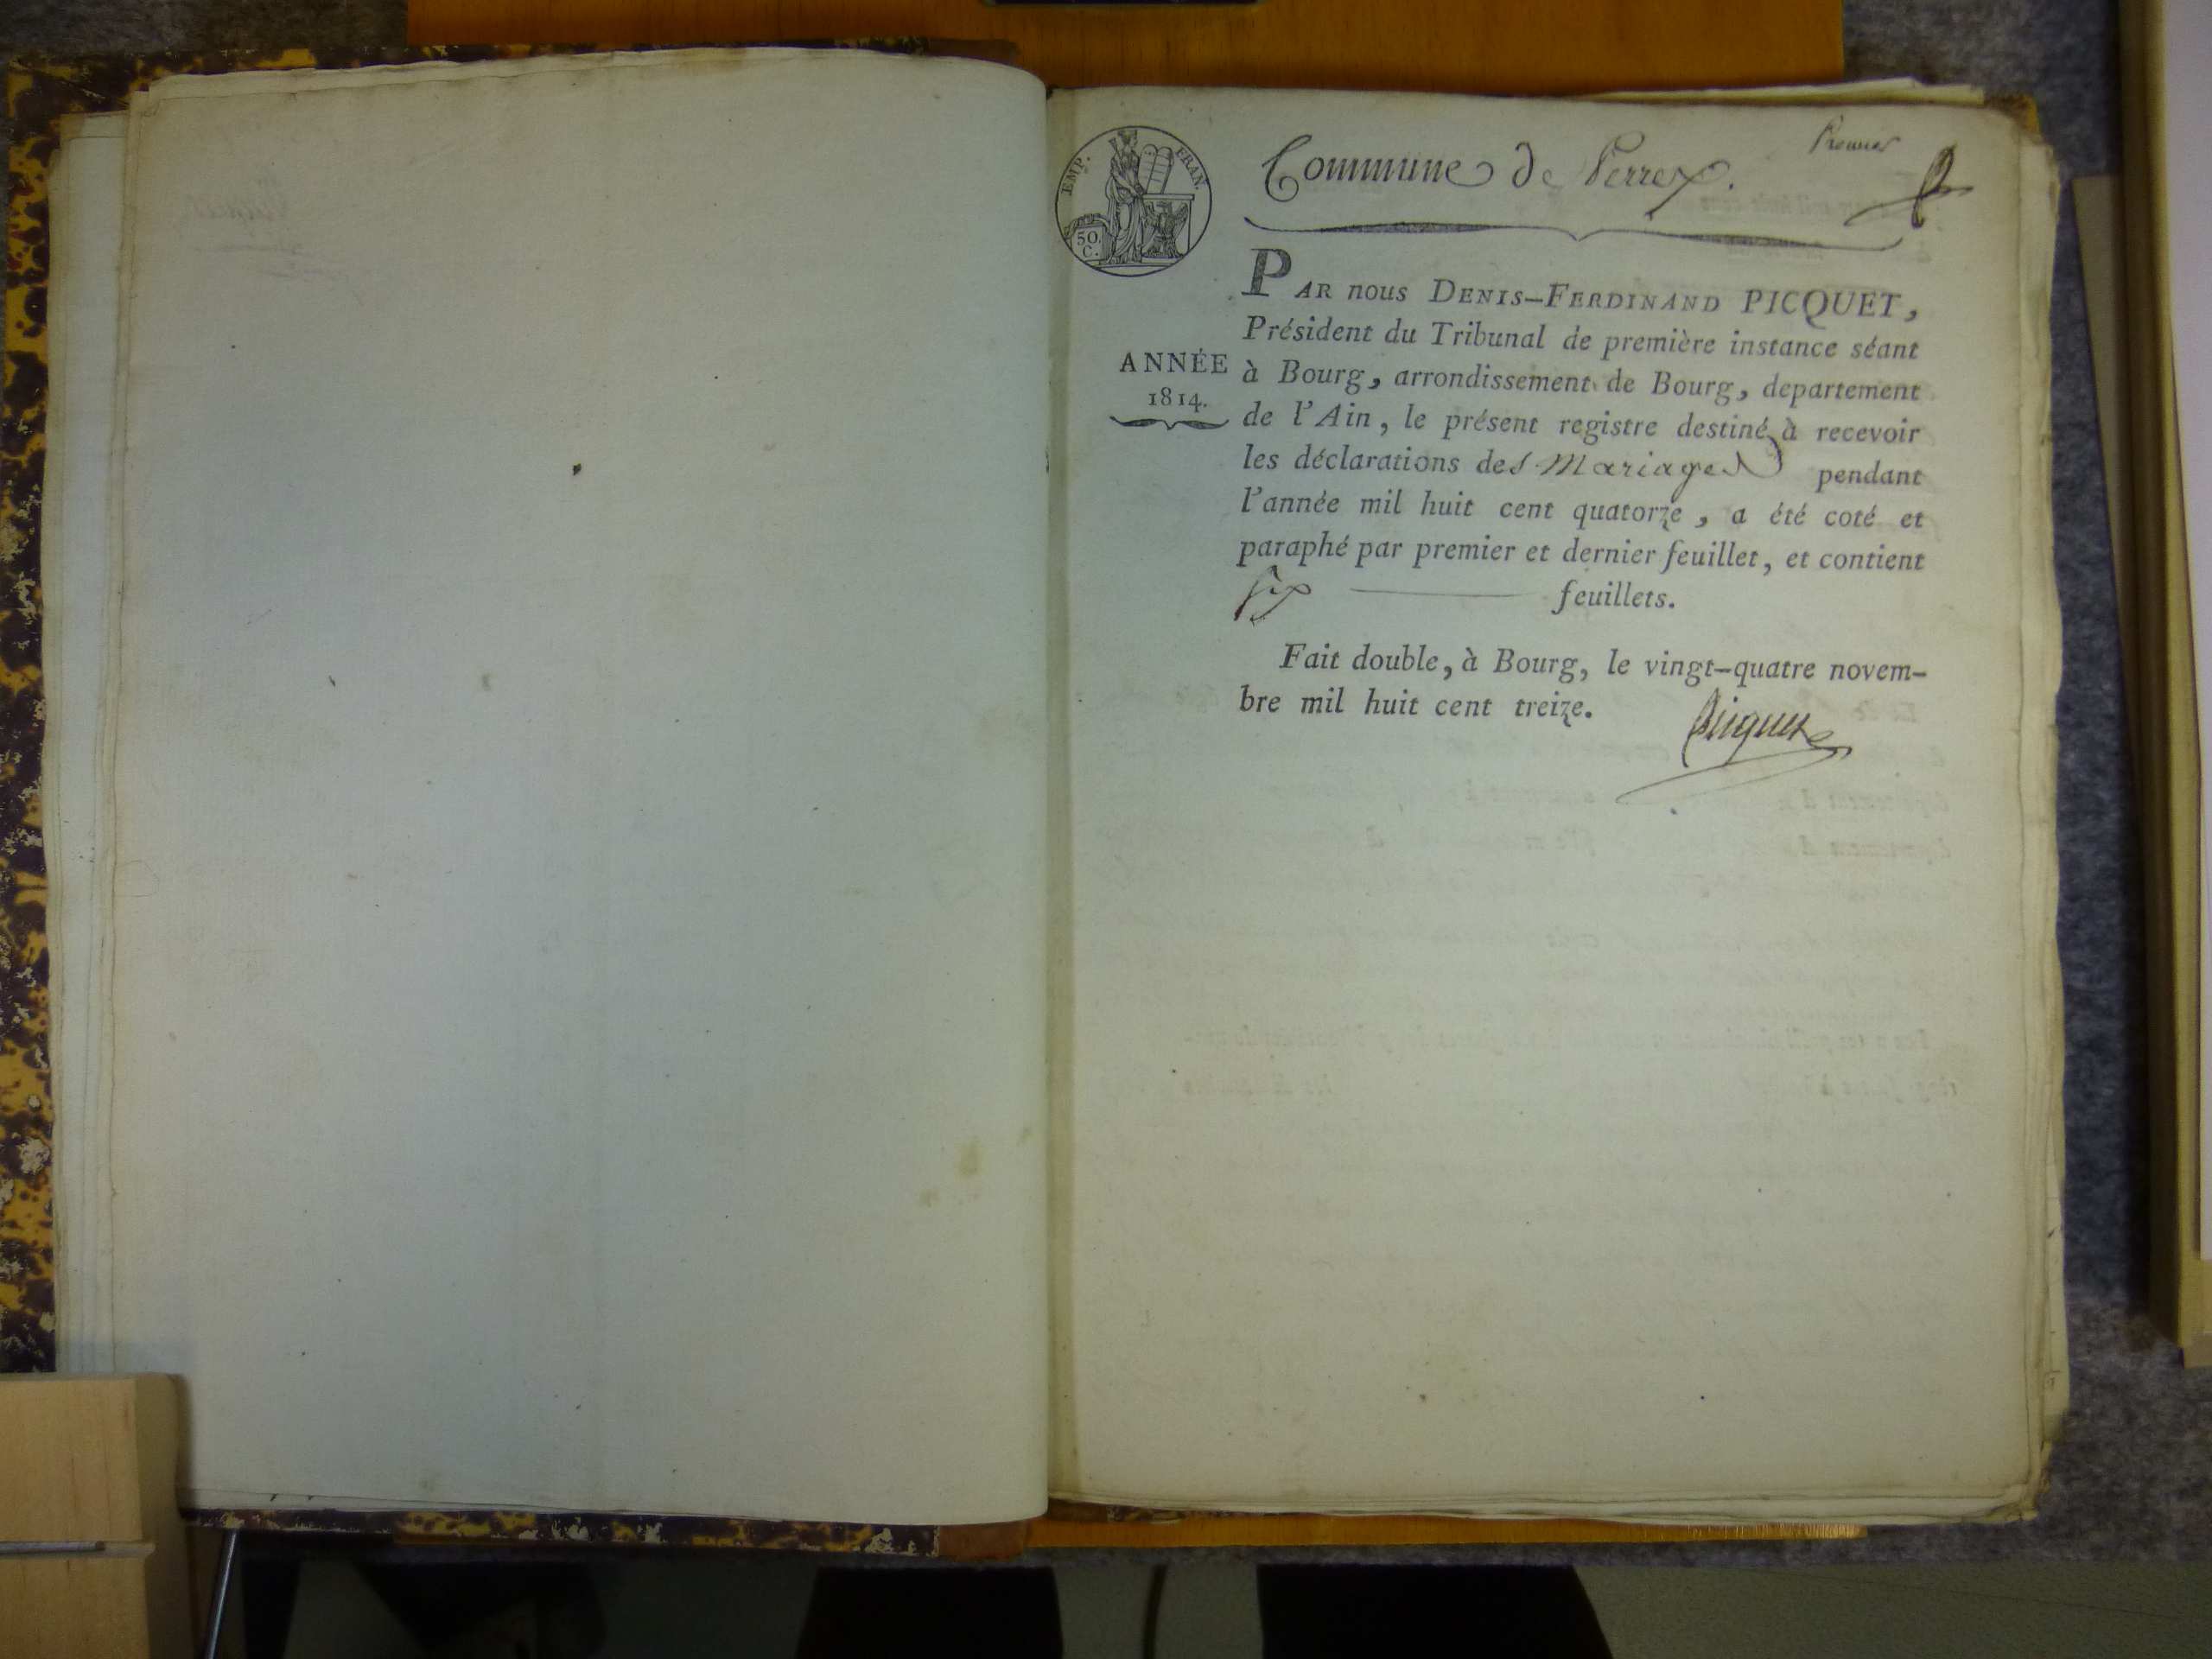 Premier
EMP. FRAN.
50.
C.
Commune de Perrex.
PAR nous DENIS-FERDINAND PICQUET,
Président du Tribunal de première instance séant
ANNÉE
1814.
à Bourg, arrondissement de Bourg, departement
de l'Ain, le présent registre destiné à recevoir
les déclarations des Mariages pendant
l'année mil huit cent quatorze, a été coté et
paraphé par premier et dernier feuillet, et contient
six feuillets.
Fait double, à Bourg, le vingt-quatre novem-
bre mil huit cent treize.
Picquet